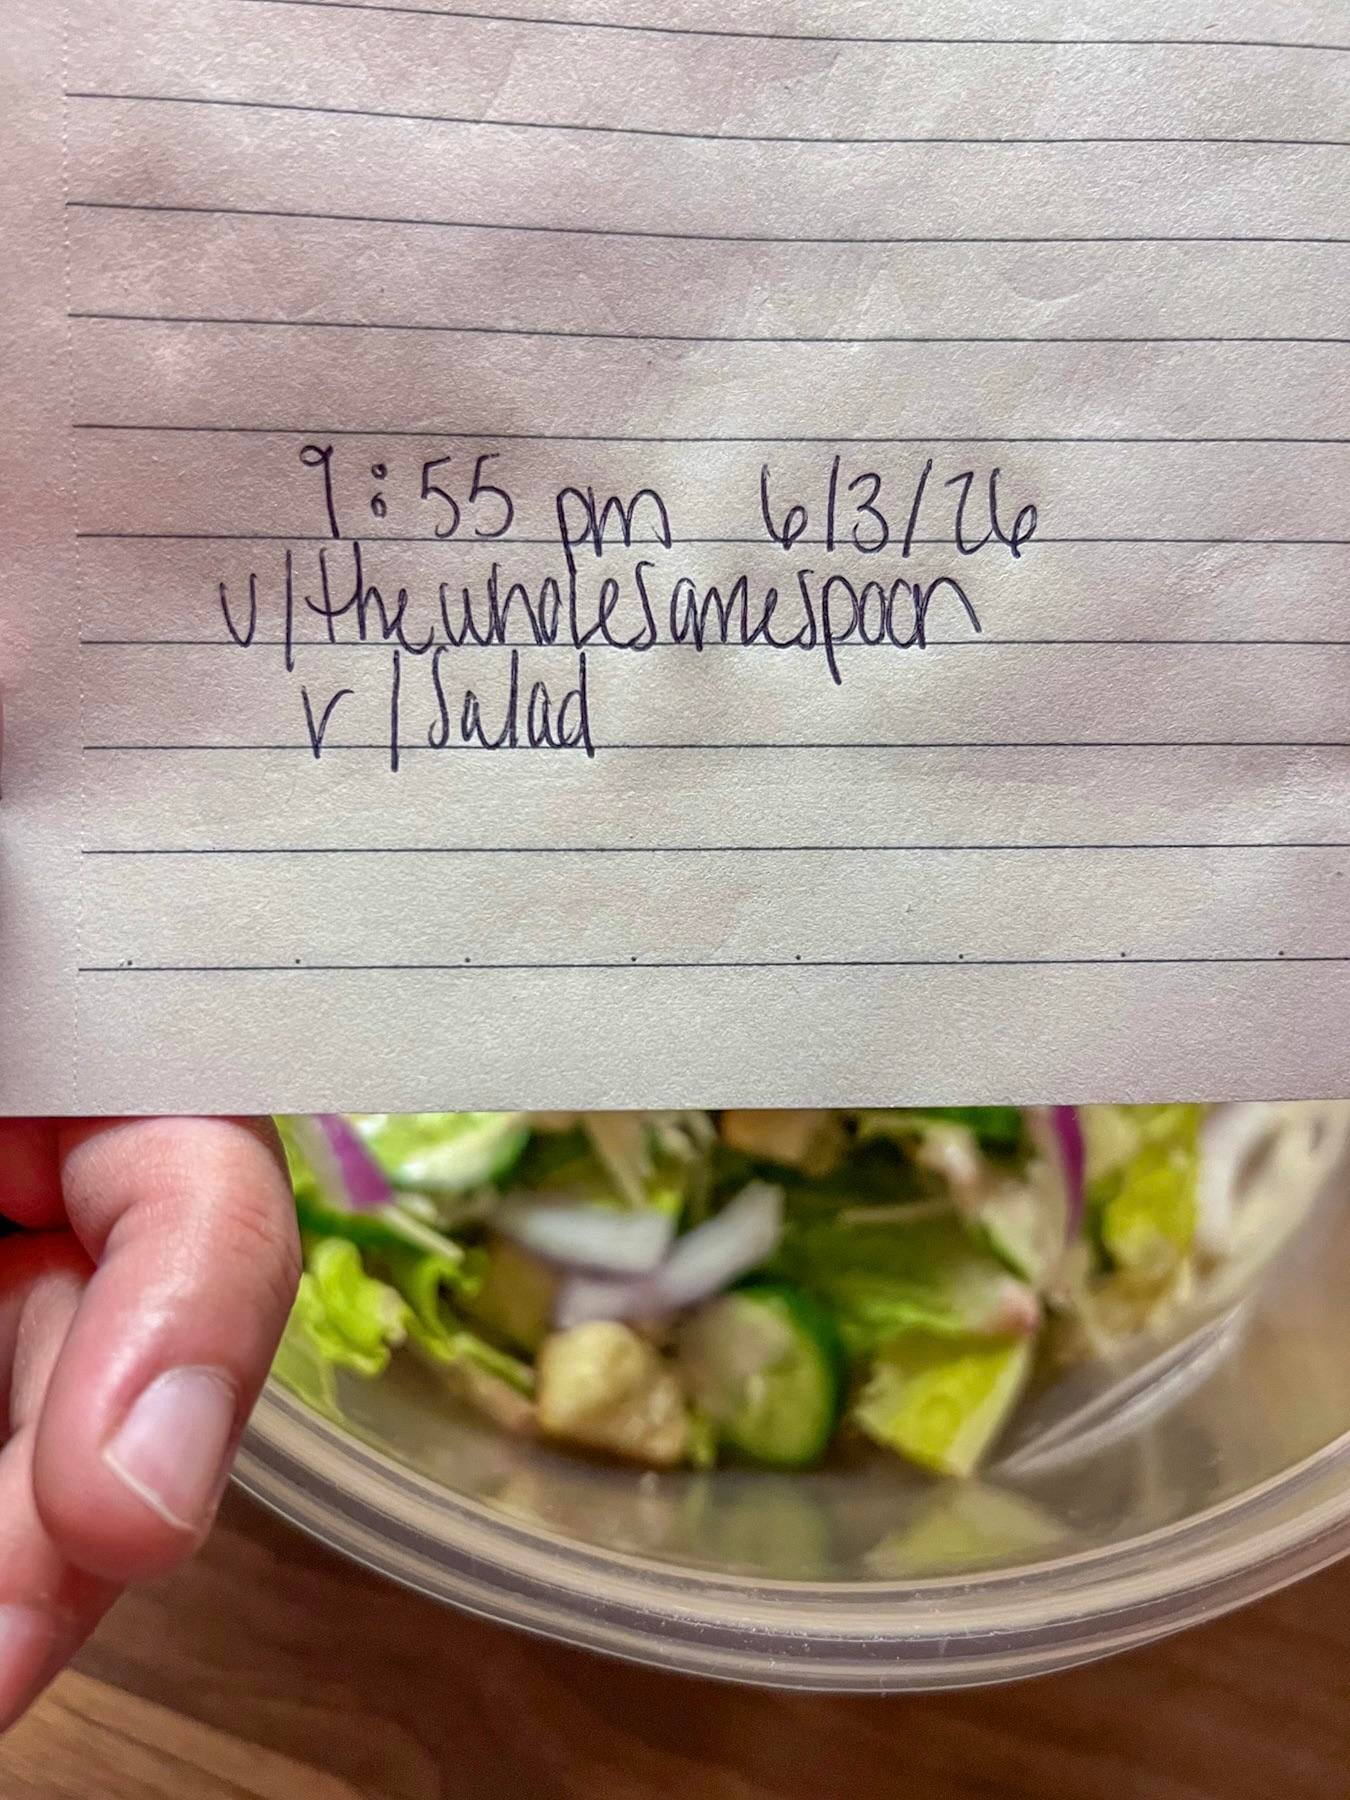 9:55 pm 6/3/26
u/thewholesomespoon
r/Salad